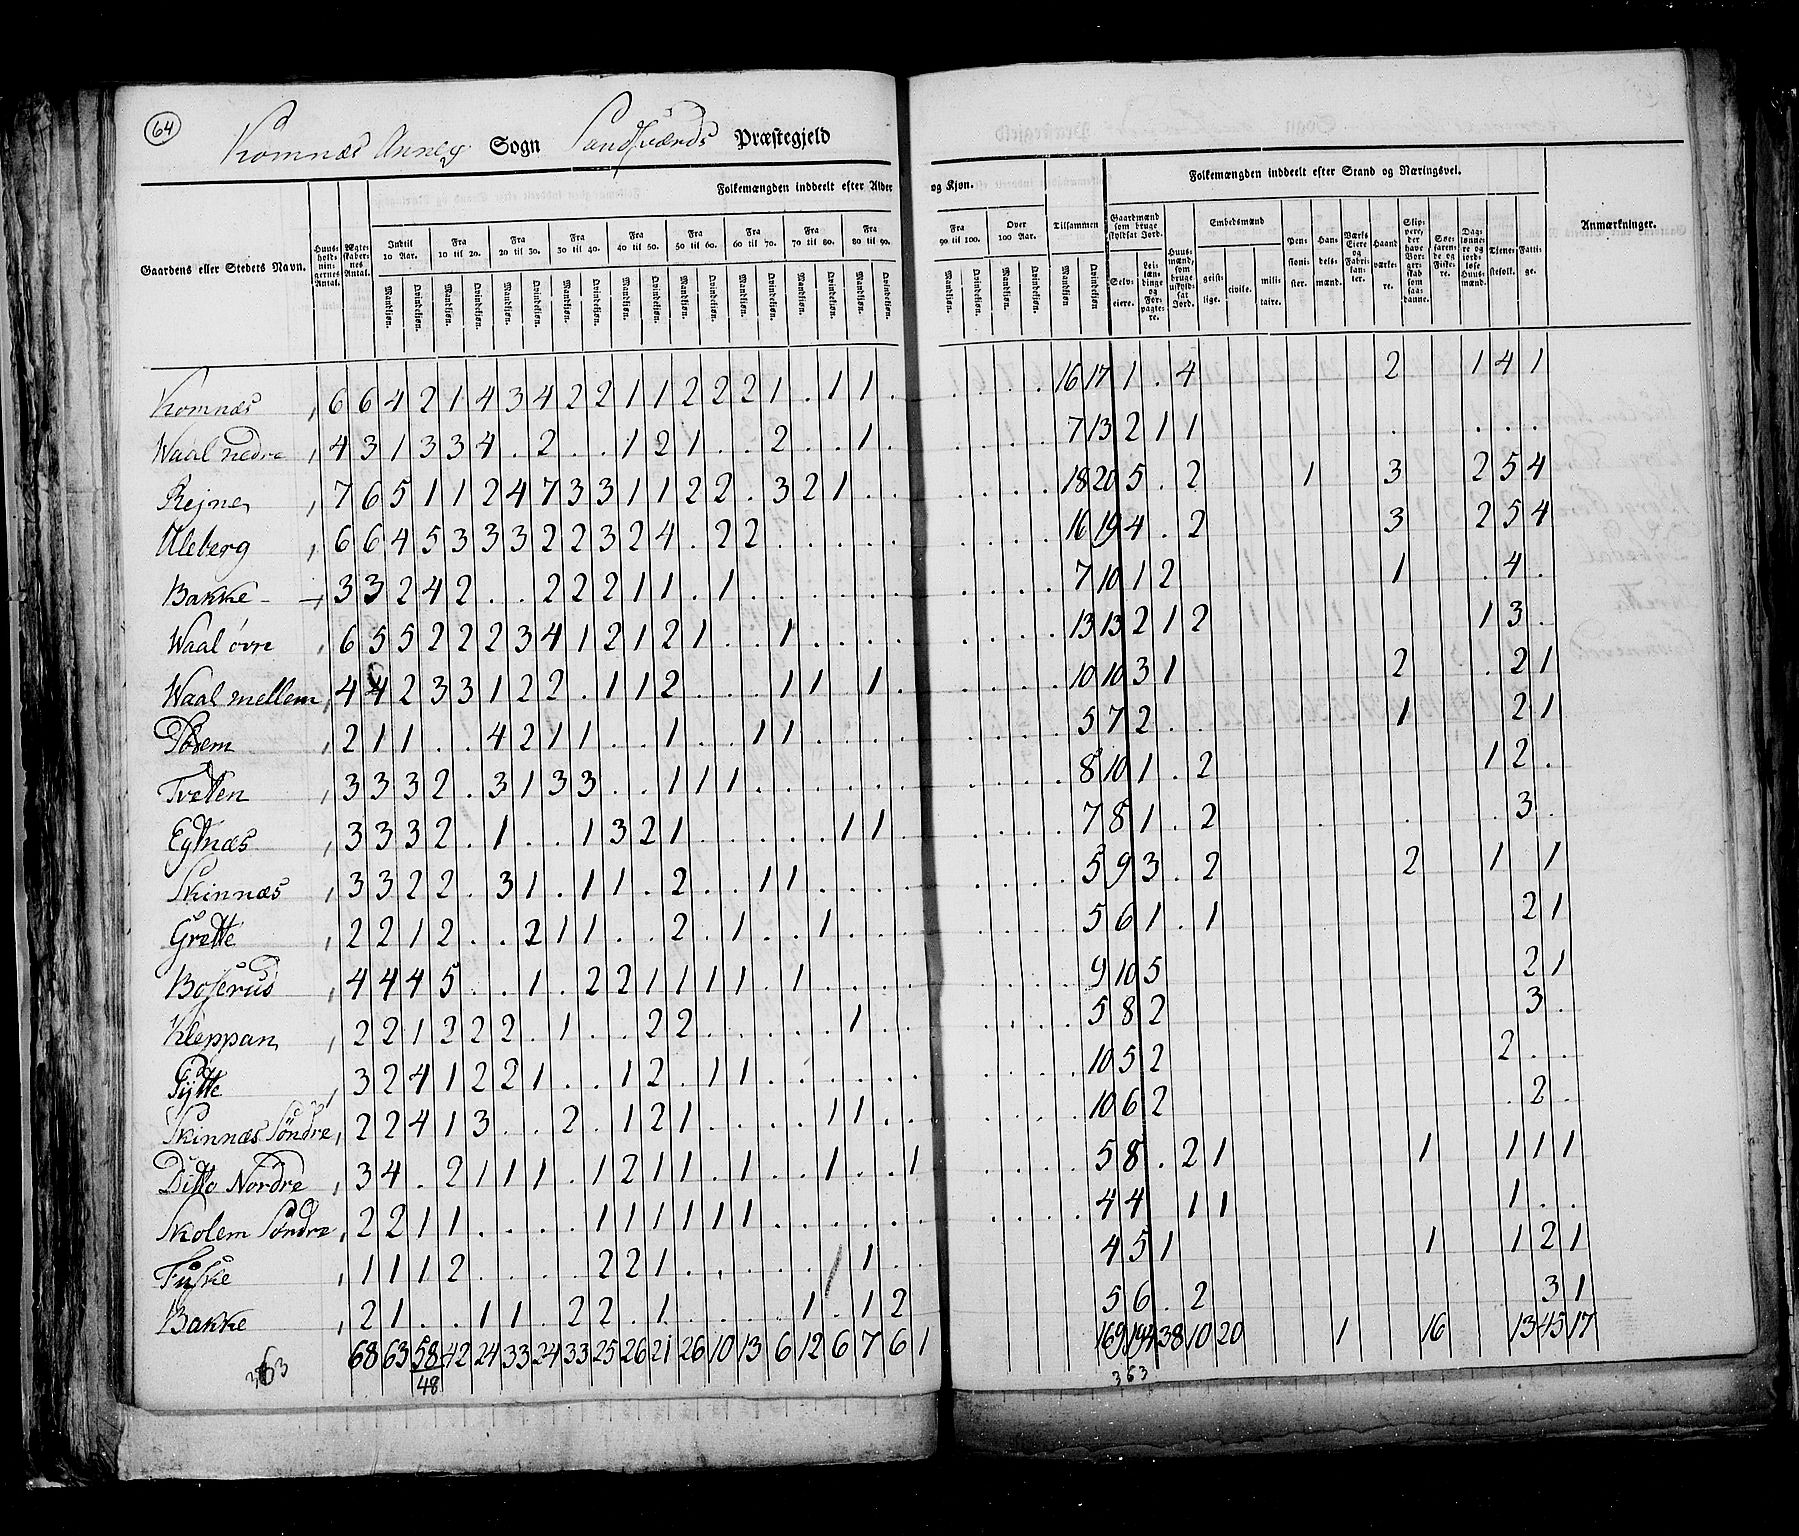 64
Komnæs Annex Sogn Sandsværds Præstegjeld
Folkemængden inddeelt efter Alder og Kjøn.
Folkemængden inddeelt efter Stand og Næringsvei.
Gaardens eller Stedets Navn.
Huus-holdnin-gernes Antal.
Ægte-skaber-nes Antal.
Indtil 10 Aar.
Fra 10 til 20.
Fra 20 til 30.
Fra 30 til 40.
Fra 40 til 50.
Fra 50 til 60.
Fra 60 til 70.
Fra 70 til 80.
Fra 80 til 90.
Fra 90 til 100.
Over 100 Aar.
Tilsammen
Mandkjøn. Qvindekjøn.
Gaardmænd som bruge skyldsat Jord.
Selv-eiere.
Lei-læn-dinge og For-pagte-re.
Huus-mænd, som bruge uskyld-sat Jord.
Embedsmænd
geist-lige.
civile.
mili-taire.
Pen-sioni-ster.
Han-dels-mænd.
Værks-Eiere og Fabri-kan-ter.
Haand værke-re.
Søe-faren-de og Fiske-re.
Dag-lønne-re og jord-løse Huus-mænd.
Tiene-stefolk.
Fatti-ge.
Anmærkninger.
Komnæs 6 6 4 2 1 4 3 4 2 2 1 1 2 2 2 1 . 1 1 . . . . . 16 17 1 . 4 2 1 4 1
Waal nedre 4 3 1 3 3 4 . 2 . . 1 2 1 . . 2 . . 1 . . . . . 7 13 2 1 1 . . . .
Rejne 7 6 5 1 1 2 4 7 3 3 1 1 2 2 . 3 2 1 . . . . . . 18 20 5 . 2 1 3 2 5 4
Uleberg 6 6 4 5 3 3 3 2 2 3 2 4 . 2 2 . . . . . . . . 16 19 4 . 2 3 2 5 4
Bakke 3 3 2 4 2 . . 2 2 2 1 1 . 1 . . . . . . . . . . 7 10 1 2 1 . 4 .
Waal övre 6 5 5 2 2 2 3 4 1 2 1 2 1 . . 1 . . . . . . . . 13 13 2 1 2 1 3 .
Waal mellem 4 4 2 3 3 1 2 2 . 1 1 2 . . . 1 1 . 1 . . . . . 10 10 3 1 2 . 2 1
2 1 1 . . 4 2 1 1 . . 1 . . 1 1 . . . . . . . . 5 7 2 . . 1 2 1
Tvetten 3 3 3 2 . 3 1 3 3 . . 1 1 1 . . . . . . . . . . 8 10 1 . 2 1 2 .
3 3 3 2 . 1 . . 1 3 2 1 . . . . . 1 1 . . . . . 7 8 1 . 2 . . 3 .
Skinnæs 3 3 2 2 . 3 1 . 1 1 . 2 . . 1 1 . . . . . . . . 5 9 3 . 2 2 1 1
Grette 2 2 1 2 . . 2 1 1 . . 2 . 1 . . 1 . . . . . . . 5 6 1 . 1 2 1
Boserud 4 4 4 5 . . 1 . 2 2 1 1 1 1 . 1 . . . . . . . . 9 10 5 2 1
Kleppan 2 2 1 2 2 2 . 1 . . 2 2 . . . . . 1 . . . . . . 5 8 2 3 .
3 2 4 1 2 2 1 . . 1 2 . 1 1 . . . . . . . . . . 10 5 2 2 . .
Skinnæs Söndre 2 2 4 1 3 . . 2 . 1 2 1 . . . . 1 1 . . . . . . 10 6 2 . 2 .
Ditto Nordre 3 4 . 2 1 1 1 . 1 2 1 1 . 1 . . 1 . . 1 . . . . 5 8 . 2 1 1 1 1 1
Skolem Söndre 2 2 1 1 . . . . 1 1 1 1 1 1 . . . . . . . . . . 4 4 1 1 1 . .
1 1 1 2 . . . . 2 2 1 . . . . . . 1 . . 4 5 1 1 1 2 1
Bakke 2 1 . . 1 1 . 2 2 . 1 . . . . 1 . 1 2 5 6 . 2 3 1
68 63 58 42 24 33 24 33 25 26 21 26 10 13 6 12 6 7 6 1 169 194 38 10 20 1 16 13 45 17
48
363
363